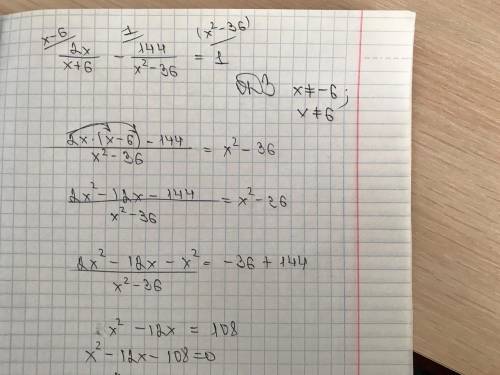 x-6 1 (x²-36)
2x/(x+6) - 144/(x²-36) = 1
ОДЗ x≠-6;
x≠6
(2x·(x-6)-144)/(x²-36) = x²-36
(2x²-12x-144)/(x²-36) = x²-36
(2x²-12x-x²)/(x²-36) = -36+144
x²-12x = 108
x²-12x-108=0